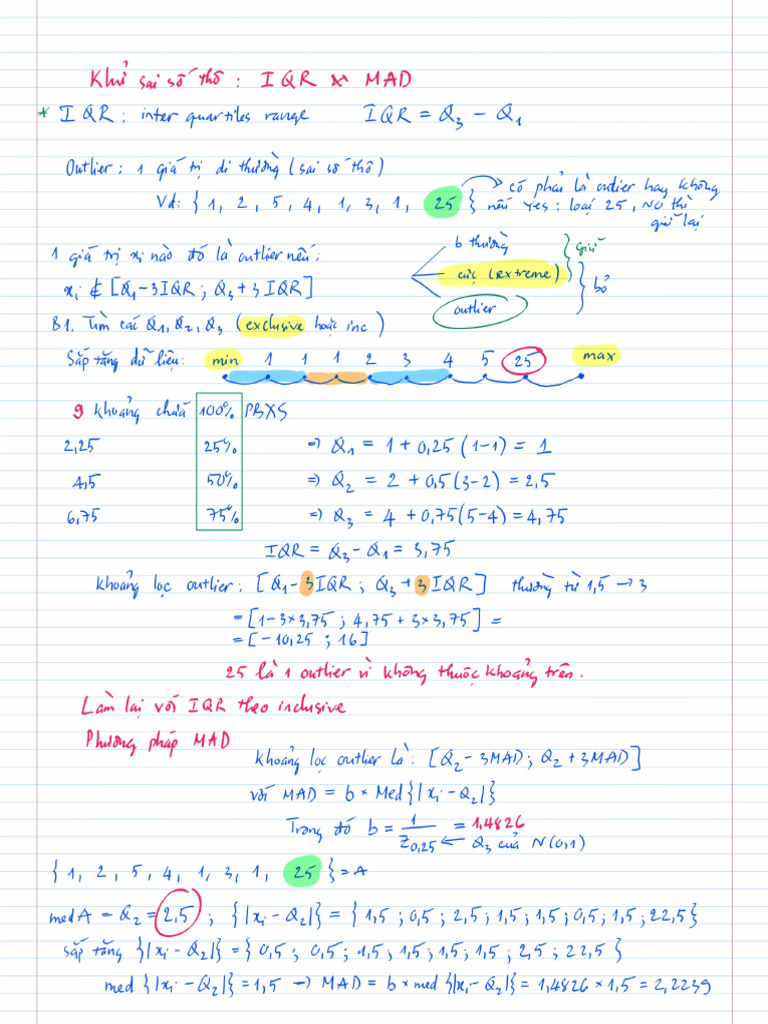 Khử sai số thô : IQR & MAD
* IQR : inter quartiles range IQR = Q₃ − Q₁
Outlier : 1 giá trị dị thường (sai số thô)
Vd: { 1, 2, 5, 4, 1, 3, 1, 25 } → có phải là outlier hay không
nếu Yes : loại 25, No thì
giữ lại
1 giá trị xᵢ nào đó là outlier nếu:
xᵢ ∉ [Q₁−3IQR ; Q₃+3IQR]
b thường
cực (extreme)
outlier
giữ
bỏ
B1. Tìm các Q₁, Q₂, Q₃ (exclusive hoặc inc)
Sắp tăng dữ liệu: min 1 1 1 2 3 4 5 25 max
9 khoảng chứa 100% PBXS
2,25 25% ⇒ Q₁ = 1 + 0,25 (1−1) = 1
4,5 50% ⇒ Q₂ = 2 + 0,5 (3−2) = 2,5
6,75 75% ⇒ Q₃ = 4 + 0,75 (5−4) = 4,75
IQR = Q₃ − Q₁ = 3,75
khoảng lọc outlier : [Q₁− 3IQR ; Q₃ + 3IQR] thường từ 1,5 → 3
= [1−3×3,75 ; 4,75 + 3×3,75] =
= [−10,25 ; 16]
25 là 1 outlier vì không thuộc khoảng trên.
Làm lại với IQR theo inclusive
Phương pháp MAD
khoảng lọc outlier là: [Q₂ − 3MAD ; Q₂ + 3MAD]
với MAD = b × Med{|xᵢ − Q₂|}
Trong đó b = 1/Z₀,₂₅ = 1,4826
← Q₃ của N(0,1)
{ 1, 2, 5, 4, 1, 3, 1, 25 } = A
med A = Q₂ = 2,5 ; {|xᵢ − Q₂|} = { 1,5 ; 0,5 ; 2,5 ; 1,5 ; 1,5 ; 0,5 ; 1,5 ; 22,5 }
sắp tăng {|xᵢ − Q₂|} = { 0,5 ; 0,5 ; 1,5 ; 1,5 ; 1,5 ; 1,5 ; 2,5 ; 22,5 }
med {|xᵢ − Q₂|} = 1,5 → MAD = b × med {|xᵢ − Q₂|} = 1,4826 × 1,5 = 2,2239